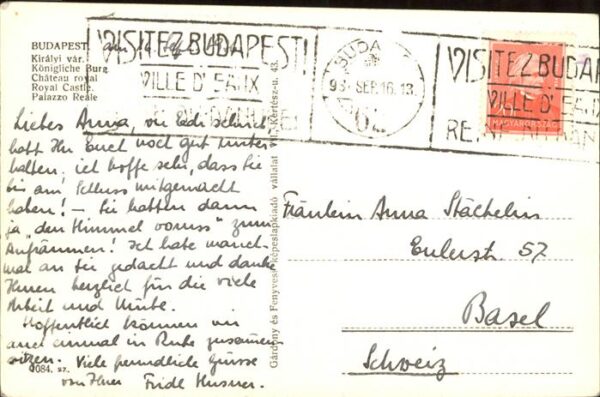 BUDAPEST.
Királyi vár.
Königliche Burg.
Château royal
Royal Castle.
Palazzo Reale
VISITEZ BUDAPEST!
VILLE D'EAUX
BUDA
SEP. 16. 13
VISITEZ BUDAP
VILLE D'EAUX
Liebes Annja,
habt Ihr Euch noch gut unter
halten, ich hoffe sehr, dass Sie
bis am Schluss mitgemacht
haben! – Sie hatten dann
ja "den Himmel voraus" zum
Aufräumen! Ich habe manch-
mal an Sie gedacht und danke
Ihnen herzlich für die viele
Arbeit und Mühe.
Hoffentlich können wir
auch einmal in Ruhe zusammen
sitzen. Viele freundliche Grüsse
von Ihrer Fridl Husner.
0084. sz.
Gárdony és Fenyvesi képeslapkiadó vállalat VII., Kertész-u. 43.
Fräulein Anna Stächelin
Eulerst. 57
Basel
Schweiz